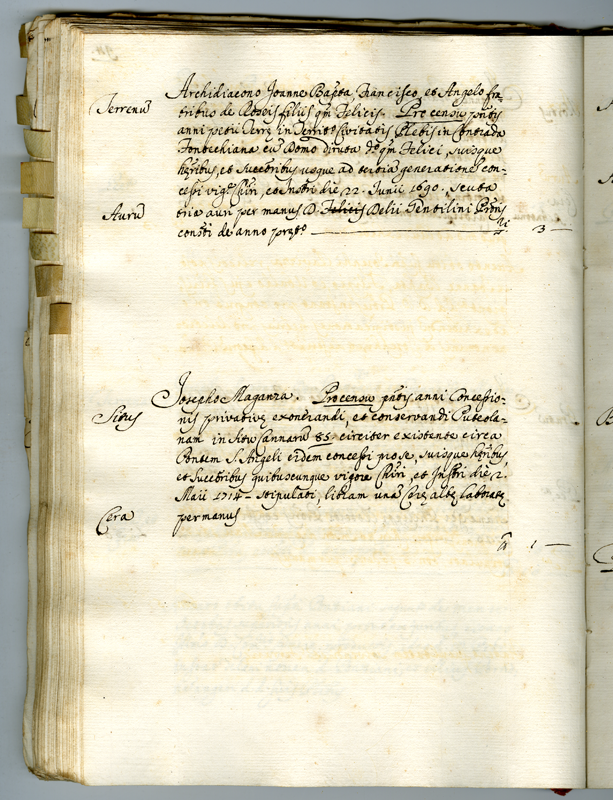 Archidiacono Joanne Bapta Francisco, et Angelo fra-
Terrenũ
tribus de Rubeis filiis qm̃ Felicis. Pro censu pñtis
anni petii Terrę in Territo Civitatis Plebis in Contrada
Fontechiana cũ Domo diruta do qm̃ Felici, suisque
hęribus, et Succribus usque ad tertia generationẽ con-
cessi vigo Chiri, et Instri die 22. Junii 1690. scuta
Aurũ
tria auri per manus D. Felicis Delii Gentilini
constı de anno prẹto 3 —
Josepho Maganza. Pro censu pñtis anni Concessio-
Situs
nis privativę exonerandi, et conservandi Puteola-
nam in Situ Cannarũ 85. circiter existente circa
Pontem S. Angeli eidem concessi pro se, suisque hęribus,
et Succribus quibuscunque vigore Chiri, et Instri die 2.
Maii 1714 - stipulati, libram unã Cerę albę laboratę
Cera
per manus
1 —